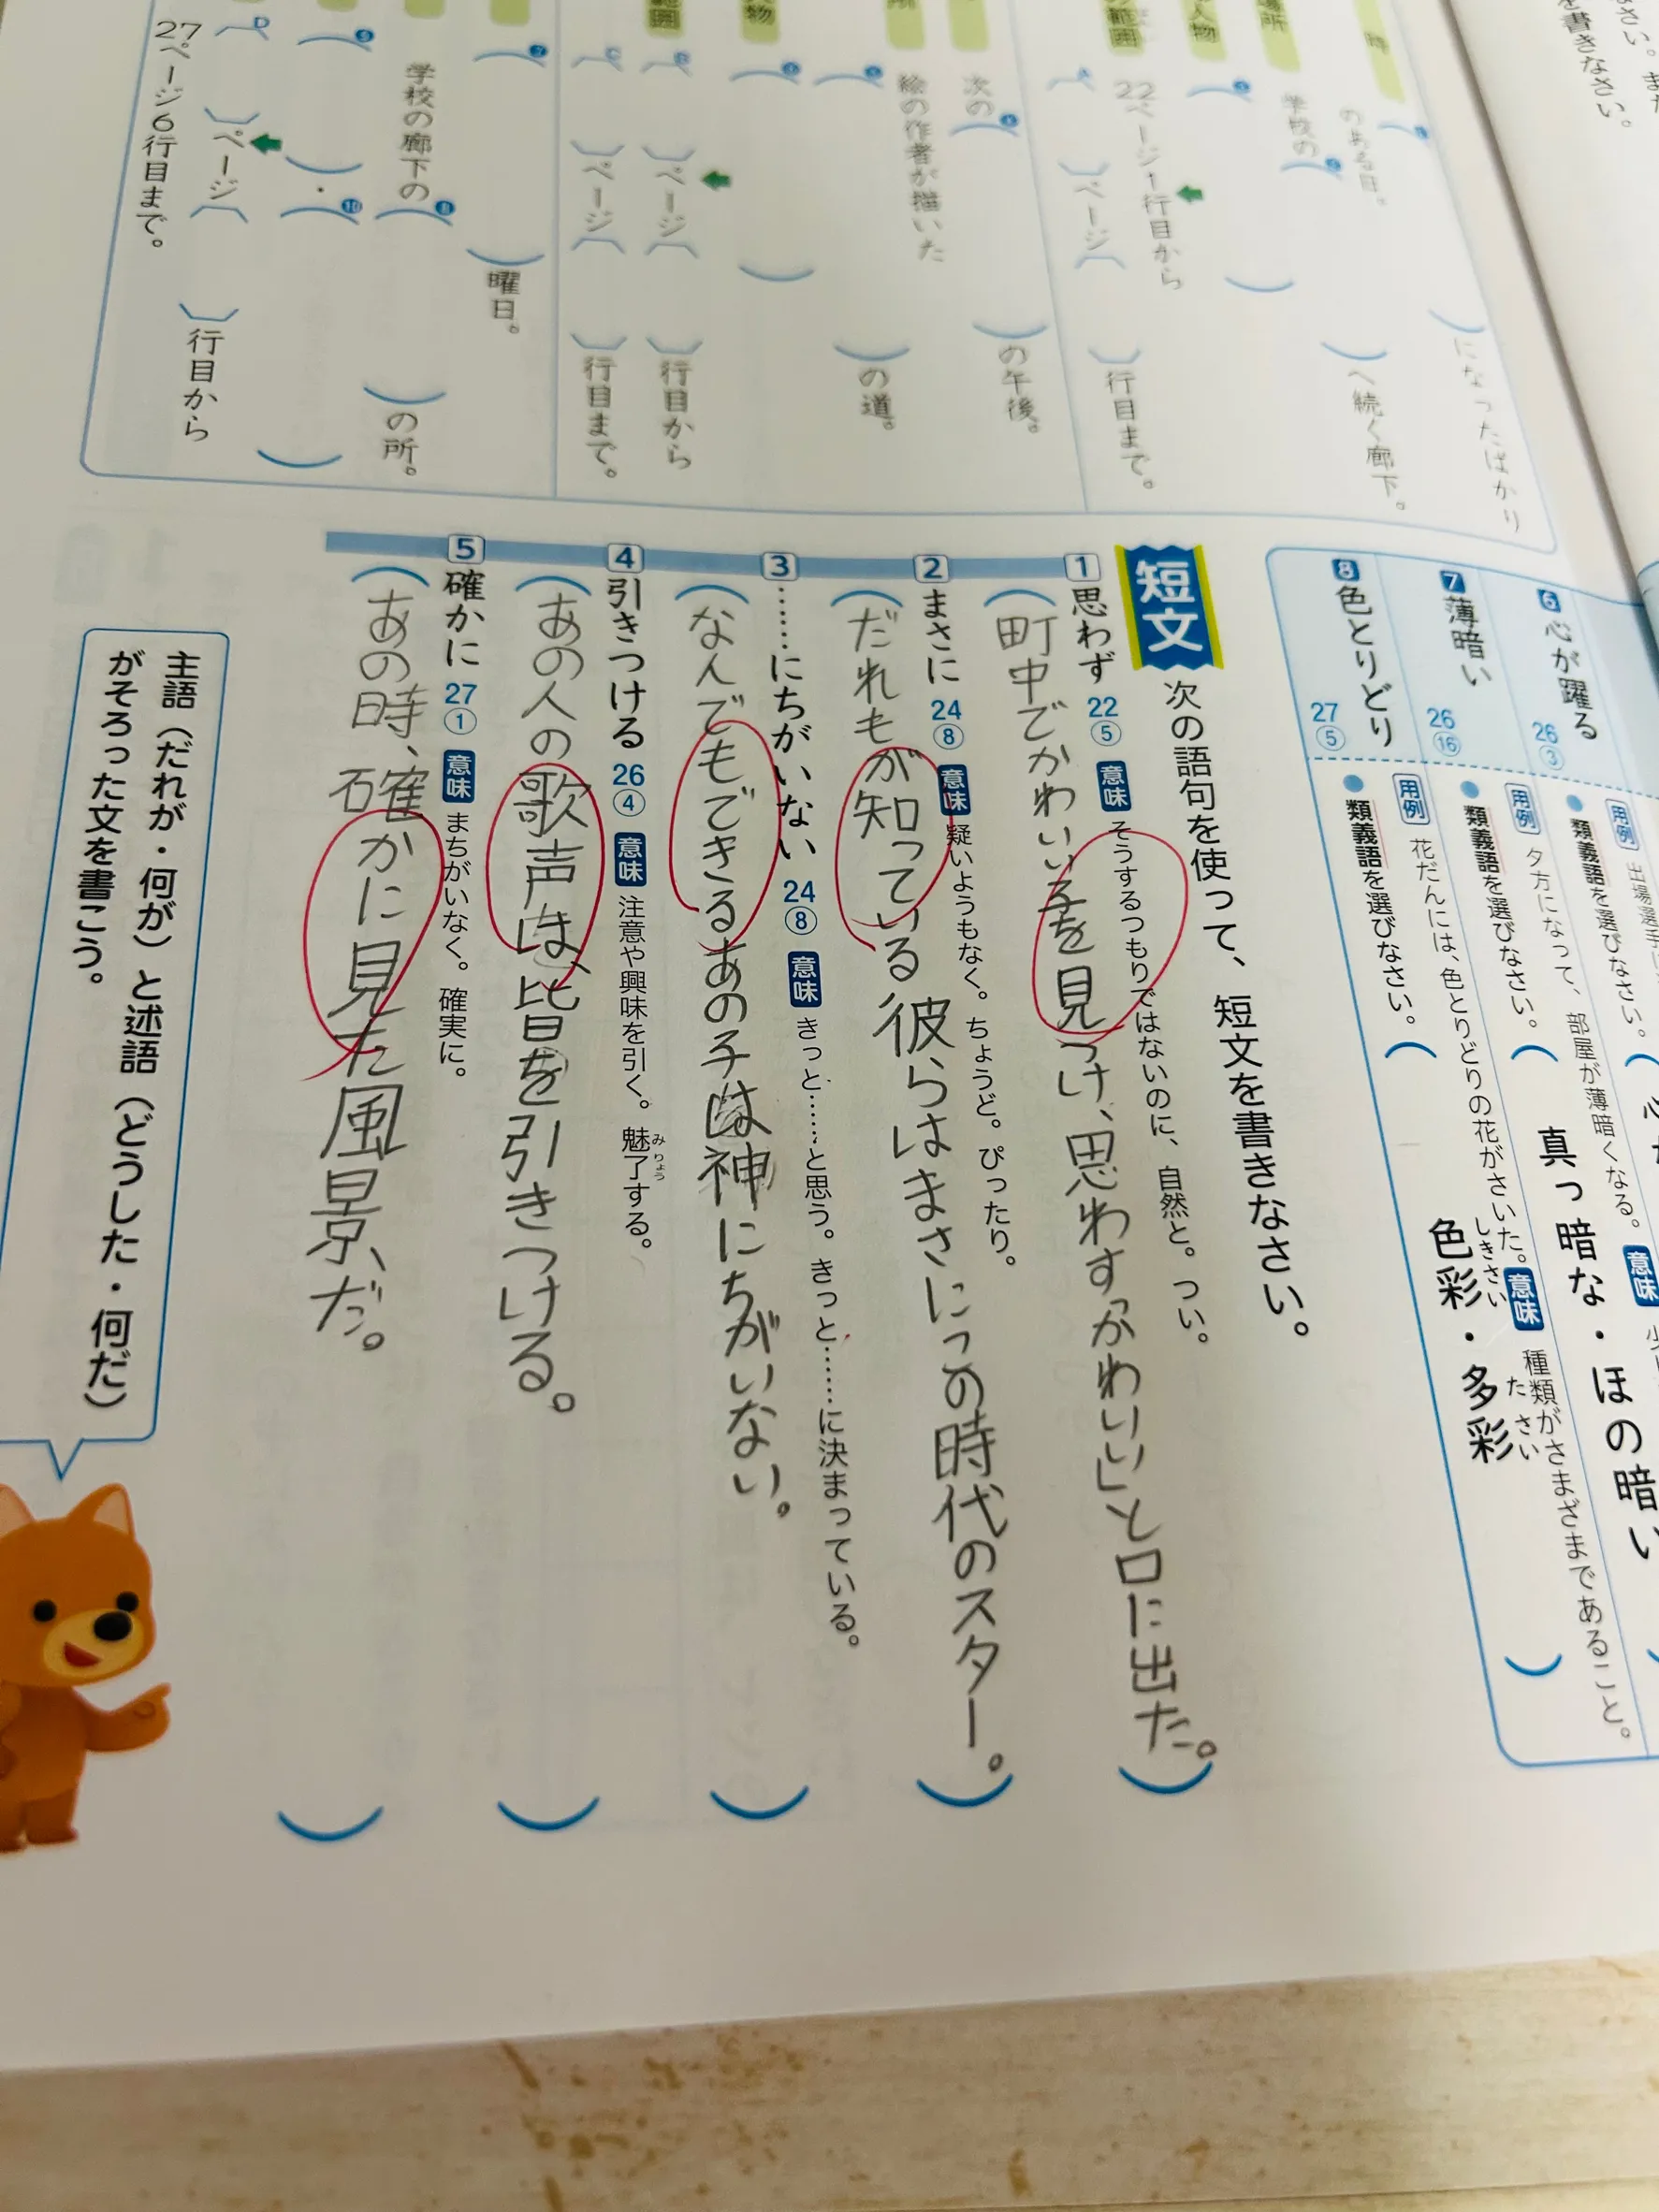 を書きなさい。
時
のある日。
になったばかり
場所
学校の
へ続く廊下。
人物
範囲
22ページ1行目から
ページ
行目まで。
次の
の午後。
絵の作者が描いた
の道。
範囲
ページ
行目から
ページ
行目まで。
曜日。
学校の廊下の
の所。
・
ページ
行目から
27ページ6行目まで。
6 心が躍る 26③
用例
類義語を選びなさい。
意味
7 薄暗い 26⑯
用例 夕方になって、部屋が薄暗くなる。
類義語を選びなさい。
真っ暗な・ほの暗い
8 色とりどり 27⑤
用例 花だんには、色とりどりの花がさいた。 意味 種類がさまざまであること。
類義語を選びなさい。
色彩・多彩
しきさい
たさい
短文 次の語句を使って、短文を書きなさい。
1 思わず 22⑤ 意味 そうするつもりではないのに、自然と。つい。
(町中でかわいい子を見つけ、思わず「かわいい」と口に出た。)
2 まさに 24⑧ 意味 疑いようもなく。ちょうど。ぴったり。
(だれもが知っている彼らはまさにこの時代のスター。)
3 ……にちがいない 24⑧ 意味 きっと……と思う。きっと……に決まっている。
(なんでもできるあの子は神にちがいない。)
4 引きつける 26④ 意味 注意や興味を引く。魅了する。
みりょう
(あの人の歌声は、皆を引きつける。)
5 確かに 27① 意味 まちがいなく。確実に。
(あの時、確かに見た風景、だ。)
主語（だれが・何が）と述語（どうした・何だ）
がそろった文を書こう。